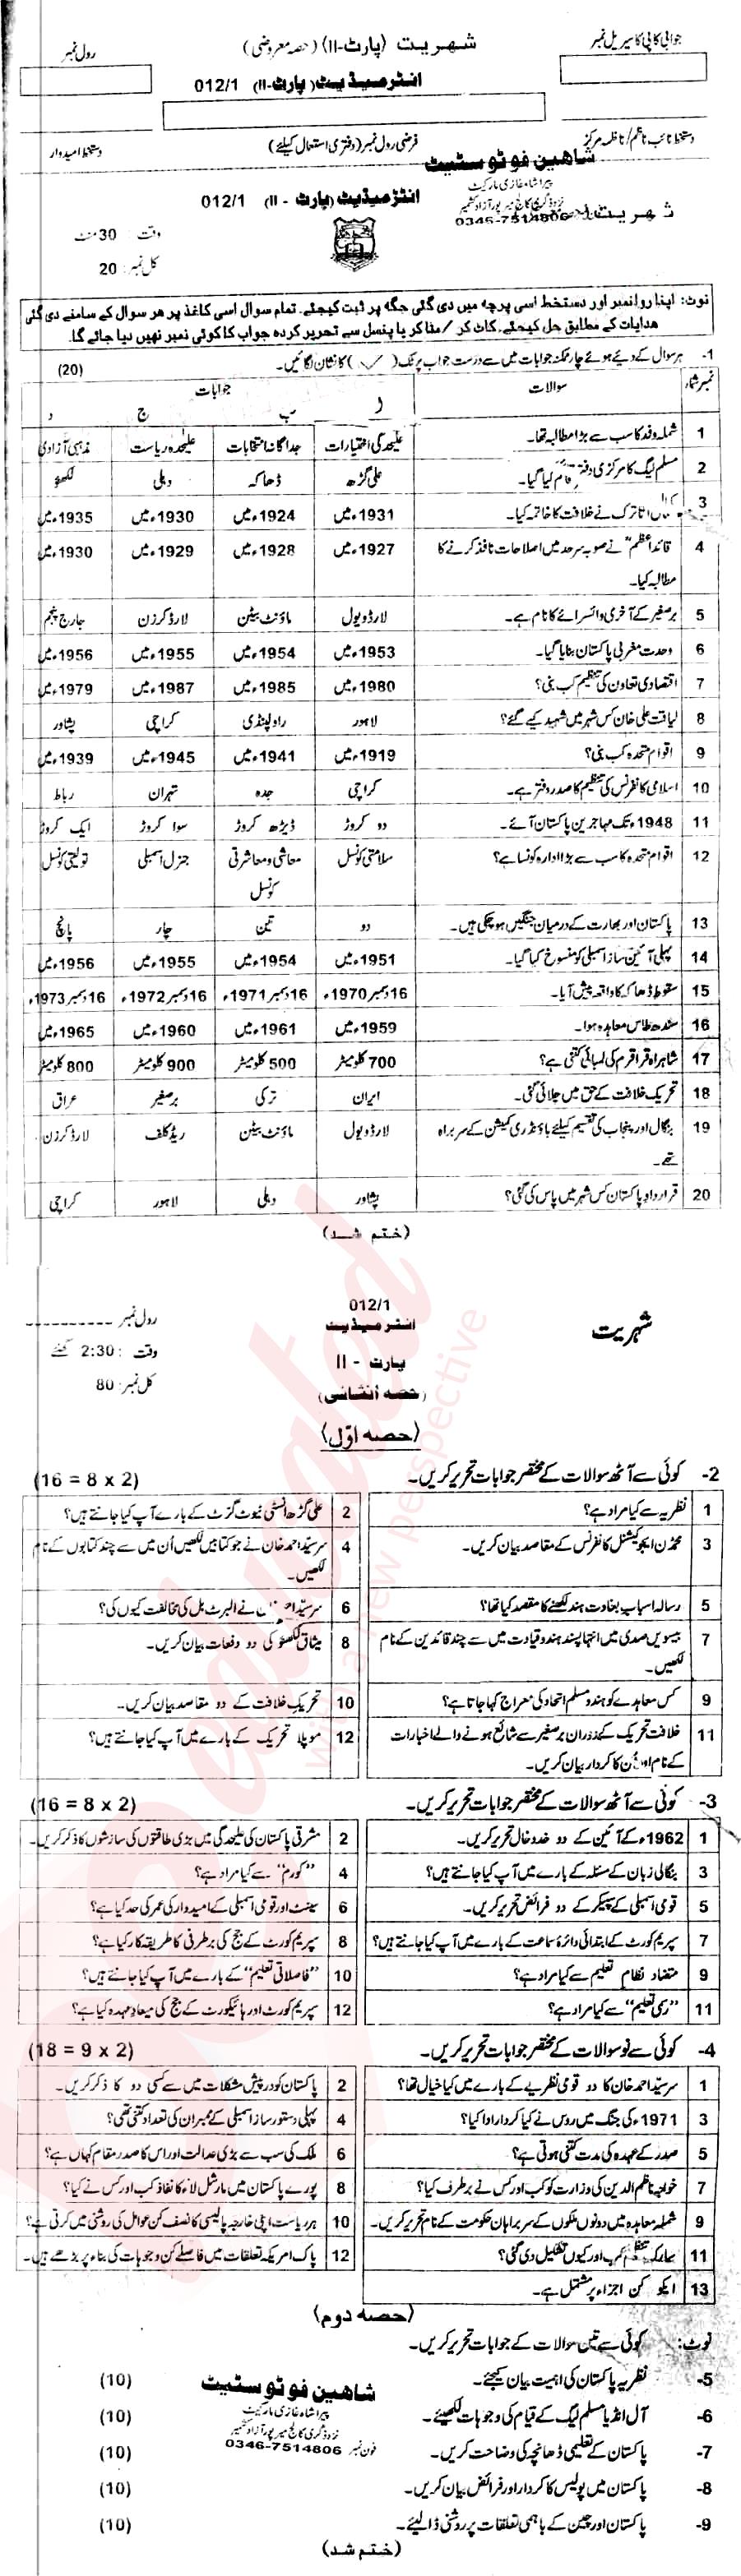 جوابی کاپی کا سیریل نمبر
شہریت (پارٹ-II) (حصہ معروضی)
رول نمبر
انٹرمیڈیٹ (پارٹ-II) 012/1
دستخط نائب ناظم/ناظمہ مرکز
فرضی رول نمبر (دفتری استعمال کیلئے)
دستخط امیدوار
شاہین فوٹو سٹیٹ
پیرا شاہ غازی مارکیٹ
نزد ڈگری کالج میرپور آزاد کشمیر
0346-7514806
شہریت
انٹرمیڈیٹ (پارٹ - II) 012/1
وقت : 30 منٹ
کل نمبر : 20
نوٹ: اپنا رولنمبر اور دستخط اسی پرچہ میں دی گئی جگہ پر ثبت کیجئے۔ تمام سوال اسی کاغذ پر ہر سوال کے سامنے دی گئی
ہدایات کے مطابق حل کیجئے۔ کاٹ کر / مٹا کر یا پنسل سے تحریر کردہ جواب کا کوئی نمبر نہیں دیا جائے گا۔
1- ہر سوال کے دیئے ہوئے چار ممکنہ جوابات میں سے درست جواب پر ٹک (✓) کا نشان لگائیں۔ (20)
نمبر شمار سوالات جوابات
ا ب ج د
1 شملہ وفد کا سب سے بڑا مطالبہ تھا۔ علیحدگی اختیارات جداگانہ انتخابات علیحدہ ریاست مذہبی آزادی
2 مسلم لیگ کا مرکزی دفتر قائم کیا گیا۔ علی گڑھ ڈھاکہ دہلی لکھنؤ
3 اتاترک نے خلافت کا خاتمہ کیا۔ 1931ء میں 1924ء میں 1930ء میں 1935ء میں
4 قائداعظمؒ نے صوبہ سرحد میں اصلاحات نافذ کرنے کا 1927ء میں 1928ء میں 1929ء میں 1930ء میں
مطالبہ کیا۔
5 برصغیر کے آخری وائسرائے کا نام ہے۔ لارڈ ویول ماؤنٹ بیٹن لارڈ کرزن جارج پنجم
6 وحدت مغربی پاکستان بنایا گیا۔ 1953ء میں 1954ء میں 1955ء میں 1956ء میں
7 اقتصادی تعاون کی تنظیم کب بنی؟ 1980ء میں 1985ء میں 1987ء میں 1979ء میں
8 لیاقت علی خان کس شہر میں شہید کیے گئے؟ لاہور راولپنڈی کراچی پشاور
9 اقوام متحدہ کب بنی؟ 1919ء میں 1941ء میں 1945ء میں 1939ء میں
10 اسلامی کانفرنس کی تنظیم کا صدر دفتر ہے۔ کراچی جدہ تہران رباط
11 1948ء تک مہاجرین پاکستان آئے۔ دو کروڑ ڈیڑھ کروڑ سوا کروڑ ایک کروڑ
12 اقوام متحدہ کا سب سے بڑا ادارہ کونسا ہے؟ سلامتی کونسل معاشی و معاشرتی جنرل اسمبلی تولیتی کونسل
کونسل
13 پاکستان اور بھارت کے درمیان جنگیں ہو چکی ہیں۔ دو تین چار پانچ
14 پہلی آئین ساز اسمبلی کو منسوخ کیا گیا۔ 1951ء میں 1954ء میں 1955ء میں 1956ء میں
15 سقوط ڈھاکہ کا واقعہ پیش آیا۔ 16 دسمبر 1970ء 16 دسمبر 1971ء 16 دسمبر 1972ء 16 دسمبر 1973ء
16 سندھ طاس معاہدہ ہوا۔ 1959ء میں 1961ء میں 1960ء میں 1965ء میں
17 شاہراہ قراقرم کی لمبائی کتنی ہے؟ 700 کلومیٹر 500 کلومیٹر 900 کلومیٹر 800 کلومیٹر
18 تحریک خلافت کے حق میں چلائی گئی۔ ایران ترکی برصغیر عراق
19 بنگال اور پنجاب کی تقسیم کیلئے باؤنڈری کمیشن کے سربراہ لارڈ ویول ماؤنٹ بیٹن ریڈ کلف لارڈ کرزن
تھے۔
20 قرارداد پاکستان کس شہر میں پاس کی گئی؟ پشاور دہلی لاہور کراچی
(ختم شد)
012/1
شہریت
انٹرمیڈیٹ
رول نمبر ----------
پارٹ - II
وقت : 2:30 گھنٹے
(حصہ انشائی)
کل نمبر : 80
(حصہ اوّل)
2- کوئی سے آٹھ سوالات کے مختصر جوابات تحریر کریں۔ (16 = 8 x 2)
1 نظریہ سے کیا مراد ہے؟ 2 علی گڑھ انسٹی ٹیوٹ گزٹ کے بارے آپ کیا جانتے ہیں؟
3 محمڈن ایجوکیشنل کانفرنس کے مقاصد بیان کریں۔ 4 سرسیّد احمد خان نے جو کتابیں لکھیں اُن میں سے چند کتابوں کے نام
لکھیں۔
5 رسالہ اسباب بغاوت ہند لکھنے کا مقصد کیا تھا؟ 6 سرسیّد نے البرٹ بل کی مخالفت کیوں کی؟
7 بیسویں صدی میں انتہا پسند ہندو قیادت میں سے چند قائدین کے نام 8 میثاق لکھنؤ کی دو دفعات بیان کریں۔
لکھیں۔
9 کس معاہدے کو ہندو مسلم اتحاد کی معراج کہا جاتا ہے؟ 10 تحریک خلافت کے دو مقاصد بیان کریں۔
11 خلافت تحریک کے دوران برصغیر سے شائع ہونے والے اخبارات 12 موپلا تحریک کے بارے میں آپ کیا جانتے ہیں؟
کے نام اور اُن کا کردار بیان کریں۔
3- کوئی سے آٹھ سوالات کے مختصر جوابات تحریر کریں۔ (16 = 8 x 2)
1 1962ء کے آئین کے دو خدوخال تحریر کریں۔ 2 مشرقی پاکستان کی علیحدگی میں بڑی طاقتوں کی سازشوں کا ذکر کریں۔
3 بنگالی زبان کے مسئلہ کے بارے میں آپ کیا جانتے ہیں؟ 4 "کورم" سے کیا مراد ہے؟
5 قومی اسمبلی کے سپیکر کے دو فرائض تحریر کریں۔ 6 سینٹ اور قومی اسمبلی کے امیدوار کی عمر کی حد کیا ہے؟
7 سپریم کورٹ کے ابتدائی دائرۂ سماعت کے بارے میں آپ کیا جانتے ہیں؟ 8 سپریم کورٹ کے جج کی برطرفی کا طریقہ کار کیا ہے؟
9 متضاد نظام تعلیم سے کیا مراد ہے؟ 10 "فاصلاتی تعلیم" کے بارے میں آپ کیا جانتے ہیں؟
11 "رسمی تعلیم" سے کیا مراد ہے؟ 12 سپریم کورٹ اور ہائیکورٹ کے جج کی میعاد عہدہ کیا ہے؟
4- کوئی سے نو سوالات کے مختصر جوابات تحریر کریں۔ (18 = 9 x 2)
1 سرسیّد احمد خان کا دو قومی نظریے کے بارے میں کیا خیال تھا؟ 2 پاکستان کو درپیش مشکلات میں سے کسی دو کا ذکر کریں۔
3 1971ء کی جنگ میں روس نے کیا کردار ادا کیا؟ 4 پہلی دستور ساز اسمبلی کے ممبران کی تعداد کتنی تھی؟
5 صدر کے عہدہ کی مدت کتنی ہوتی ہے؟ 6 ملک کی سب سے بڑی عدالت اور اس کا صدر مقام کہاں ہے؟
7 خواجہ ناظم الدین کی وزارت کو کب اور کس نے برطرف کیا؟ 8 پورے پاکستان میں مارشل لاء کا نفاذ کب اور کس نے کیا؟
9 شملہ معاہدہ میں دونوں ملکوں کے سربراہان حکومت کے نام تحریر کریں۔ 10 ہر ریاست اپنی خارجہ پالیسی کا تصف کن عوامل کی روشنی میں کرتی ہے؟
11 سارک تنظیم کب اور کیوں تشکیل دی گئی؟ 12 پاک امریکہ تعلقات میں فاصلے کن وجوہات کی بناء پر بڑھے ہیں۔
13 ایکو کن اجزاء پر مشتمل ہے۔
(حصہ دوم)
نوٹ: کوئی سے تین سوالات کے جوابات تحریر کریں۔
5- نظریہ پاکستان کی اہمیت بیان کیجئے۔ (10)
شاہین فوٹو سٹیٹ
6- آل انڈیا مسلم لیگ کے قیام کی وجوہات لکھیئے۔ (10)
پیرا شاہ غازی مارکیٹ
نزد ڈگری کالج میرپور آزاد کشمیر
7- پاکستان کے تعلیمی ڈھانچہ کی وضاحت کریں۔ (10)
فون نمبر 0346-7514806
8- پاکستان میں پولیس کا کردار اور فرائض بیان کریں۔ (10)
9- پاکستان اور چین کے باہمی تعلقات پر روشنی ڈالیئے۔ (10)
(ختم شد)
with a new perspective